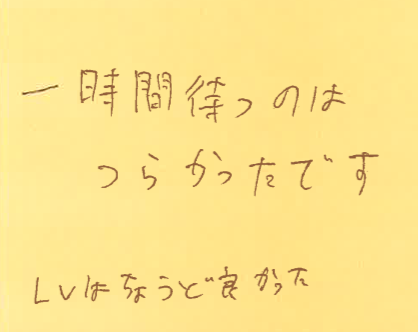 一時間待つのは
つらかったです
LVはちょうど良かった